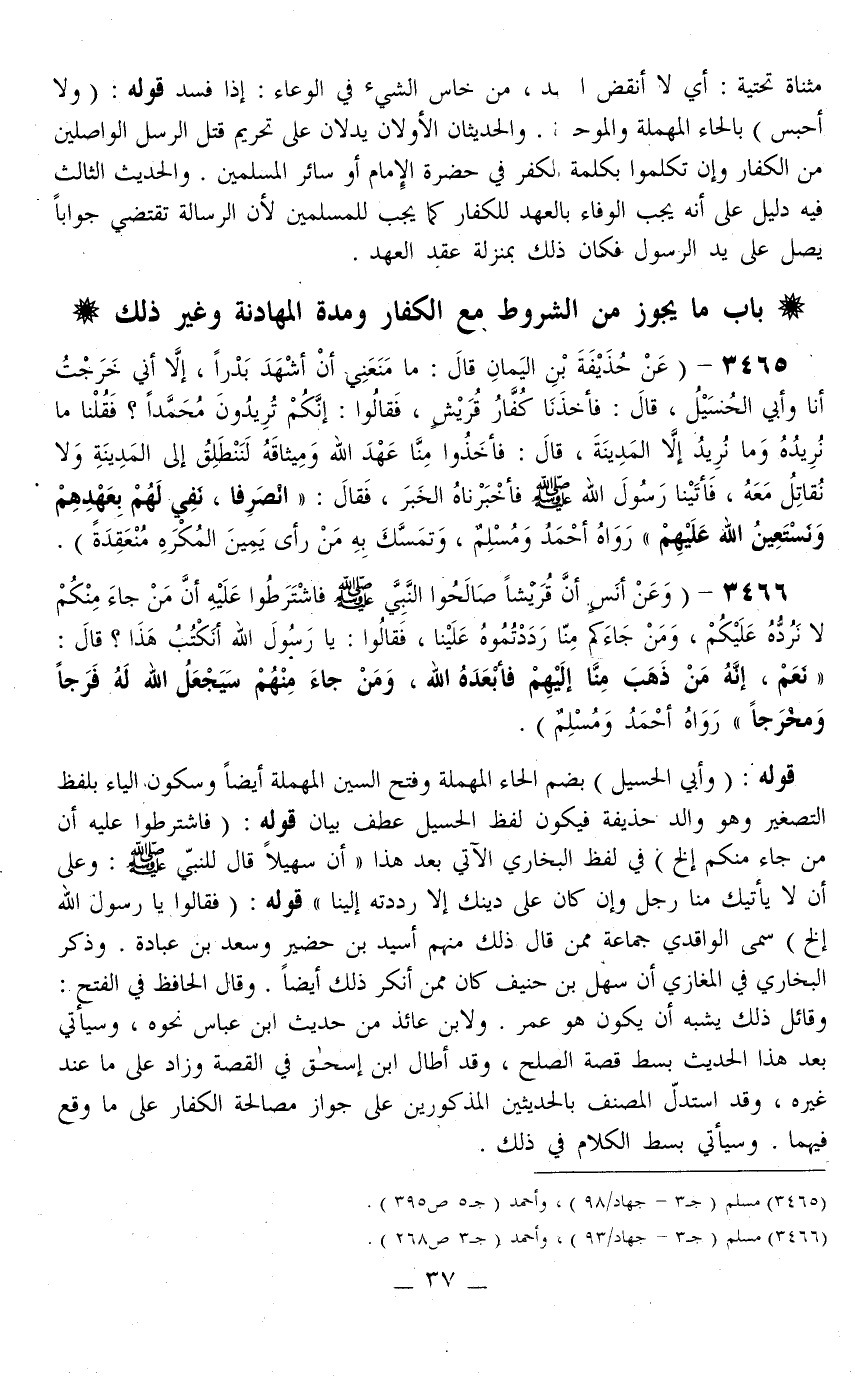 مثناة تحتية : أي لا أنقض ا هد ، من خاس الشيء في الوعاء : إذا فسد قوله : ( ولا
أحبس ) بالحاء المهملة والموح . والحديثان الأولان يدلان على تحريم قتل الرسل الواصلين
من الكفار وإن تكلموا بكلمة لكفر في حضرة الإمام أو سائر المسلمين . والحديث الثالث
فيه دليل على أنه يجب الوفاء بالعهد للكفار كما يجب للمسلمين لأن الرسالة تقتضي جواباً
يصل على يد الرسول فكان ذلك بمنزلة عقد العهد .
✵ باب ما يجوز من الشروط مع الكفار ومدة المهادنة وغير ذلك ✵
٣٤٦٥ – ( عَنْ حُذَيْفَةَ بْنِ اليَمانِ قالَ : ما مَنَعَنِي أنْ أشْهَدَ بَدْراً ، إلَّا أني خَرَجْتُ
أنا وأبي الحُسَيْلُ ، قالَ : فأخذَنَا كُفَّارُ قُرَيْشٍ ، فَقالُوا : إنَّكُمْ تُرِيدُونَ مُحَمَّداً ؟ فَقُلْنا ما
نُرِيدُهُ وَما نُرِيدُ إلَّا المَدِينَةَ ، قالَ : فأخَذُوا مِنَّا عَهْدَ الله وَمِيثاقَهُ لَنَنْطَلِقُ إلى المَدِينَةِ وَلا
نُقاتِلُ مَعَهُ ، فَأتَيْنا رَسُولَ الله ﷺ فأخْبَرْناهُ الخَبَرَ ، فَقالَ : « انْصَرِفا ، نَفِي لَهُمْ بِعَهْدِهِمْ
وَنَسْتَعِينُ الله عَلَيْهِمْ » رَوَاهُ أحْمَدُ وَمُسْلِمٌ ، وَتمَسَّكَ بِهِ مَنْ رأى يَمِينَ المُكْرَهِ مُنْعَقِدَةً ) .
٣٤٦٦ – ( وَعَنْ أنَسٍ أنَّ قُرَيْشاً صَالَحُوا النَّبِيَّ ﷺ فاشْتَرَطُوا عَلَيْهِ أنَّ مَنْ جاءَ مِنْكُمْ
لا نَرُدُّهُ عَلَيْكُمْ ، وَمَنْ جَاءَكم مِنّا رَدَدْتُمُوهُ عَلَيْنا ، فَقالُوا : يا رَسُولَ الله أنَكْتُبُ هَذَا ؟ قالَ :
« نَعَمْ ، إنَّهُ مَنْ ذَهَبَ مِنَّا إلَيْهِمْ فأبْعَدَهُ الله ، وَمَنْ جاءَ مِنْهُمْ سَيَجْعَلُ الله لَهُ فَرَجاً
وَمَخْرَجاً » رَوَاهُ أحْمَدُ وَمُسْلِمٌ ) .
قوله : ( وأبي الحسيل ) بضم الحاء المهملة وفتح السين المهملة أيضاً وسكون الياء بلفظ
التصغير وهو والد حذيفة فيكون لفظ الحسيل عطف بيان قوله : ( فاشترطوا عليه أن
من جاء منكم إلخ ) في لفظ البخاري الآتي بعد هذا « أن سهيلاً قال للنبيّ ﷺ : وعلى
أن لا يأتيك منا رجل وإن كان على دينك إلا رددته إلينا » قوله : ( فقالوا يا رسول الله
إلخ ) سمى الواقدي جماعة ممن قال ذلك منهم أسيد بن حضير وسعد بن عبادة . وذكر
البخاري في المغازي أن سهل بن حنيف كان ممن أنكر ذلك أيضاً . وقال الحافظ في الفتح :
وقائل ذلك يشبه أن يكون هو عمر . ولابن عائذ من حديث ابن عباس نحوه ، وسيأتي
بعد هذا الحديث بسط قصة الصلح ، وقد أطال ابن إسحٰق في القصة وزاد على ما عند
غيره ، وقد استدلّ المصنف بالحديثين المذكورين على جواز مصالحة الكفار على ما وقع
فيهما . وسيأتي بسط الكلام في ذلك .
(٣٤٦٥) مسلم ( جـ٣ – جهاد/٩٨ ) ، وأحمد ( جـ٥ ص٣٩٥ ) .
(٣٤٦٦) مسلم ( جـ٣ – جهاد/٩٣ ) ، وأحمد ( جـ٣ ص٢٦٨ ) .
_ ٣٧ _